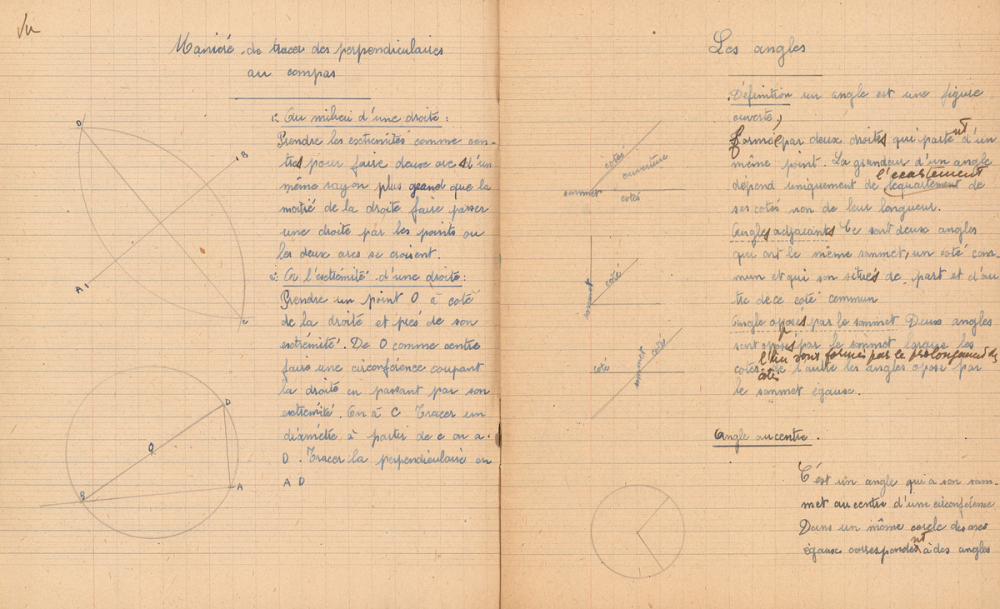 Vu
Manièré de tracer des perpendiculaires
au compas
1: Au milieu d'une droite :
Prendre les extrémités comme cen-
tres pour faire deux arcs d'un
même rayon plus grand que la
moitié de la droite faire passer
une droite par les points ou
les deux arcs se croisent.
2: A l'extrémité d'une droite :
Prendre un point O à coté
de la droite et près de son
extrémité. De O comme centre
faire une circonférence coupant
la droite en passant par son
extrémité. On à C Tracer un
diamètre à partir de c on a
D. Tracer la perpendiculaire en
A D
D
B
A
C
D
O
A
Les angles
Définition un angle est une figure
ouverte,
formée par deux droites qui partent d'un
même point. La grandeur d'un angle
l'écartement
dépend uniquement de de
ses cotés non de leur longueur.
Angles adjacents Ce sont deux angles
qui ont le même sommet, un coté com-
mun et qui son situés de part et d'au
tre de ce coté commun
Angle opposés par le sommet Deux angles
sont opposés par le sommet lorsque les
l'un sont formés par le prolongement des
cotés de l'autre les angles oposé par
cotés
le sommet égaux.
Angle au centre.
C'est un angle qui a son som-
met au centre d'une circonférence
Dans un même cercle des arcs
égaux correspondent à des angles
cotés
ouverture
sommet
cotés
sommet
coté
coté
sommet
coté